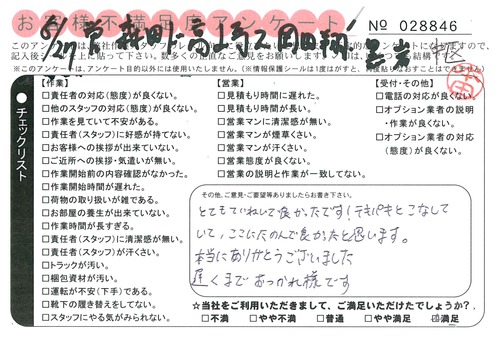 お客様不満足度アンケート
No 028846
6/27 営 森田 高山 岡田翔
【作業】
□責任者の対応(態度)が良くない。
□他のスタッフの対応(態度)が良くない。
□作業を見ていて不安がある。
□責任者(スタッフ)に好感が持てない。
□お客様への挨拶が出来ていない。
□ご近所への挨拶・気遣いが無い。
□作業開始前の内容確認がなかった。
□作業開始時間が遅れた。
□荷物の取り扱いが雑である。
□お部屋の養生が出来ていない。
□作業時間が長すぎる。
□責任者(スタッフ)に清潔感が無い。
□責任者(スタッフ)が汗くさい。
□トラックが汚い。
□梱包資材が汚い。
□運転が不安(下手)である。
□靴下の履き替えをしてない。
□スタッフにやる気がみられない。
チェックリスト
【営業】
□見積もり時間に遅れた。
□見積もり時間が長い。
□営業マンに清潔感が無い。
□営業マンが煙草くさい。
□営業マンが汗くさい。
□営業態度が良くない。
□営業の説明と作業が一致してない。
【受付・その他】
□電話の対応が良くない。
□オプション業者の説明
・作業が良くない。
□オプション業者の対応
(態度)が良くない。
その他、ご意見・ご要望等ありましたらお書き下さい。
とてもていねいで良かったです!テキパキとこなして
いて、ここにたのんで良かったと思います。
本当にありがとうございました
遅くまでおつかれ様です
☆当社をご利用いただきまして、ご満足いただけたでしょうか?
□不満 □やや不満 □普通 □やや満足 ☑満足